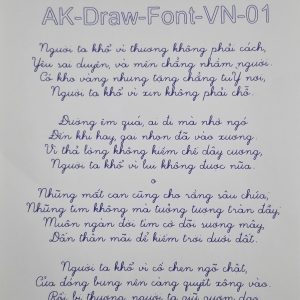 AK-Draw-Font-VN-01
Người ta khổ vì thương không phải cách,
Yêu sai duyên, và mến chẳng nhằm người.
Có kho vàng nhưng tặng chẳng tuỳ nơi,
Người ta khổ vì xin không phải chỗ.
Đường êm quá, ai đi mà nhớ ngó
Đến khi hay, gai nhọn đã vào xương.
Vì thả lòng không kiềm chế dây cương,
Người ta khổ vì lui không được nữa.
Những mắt cạn cũng cho rằng sâu chứa,
Những tim không mà tưởng tượng tràn đầy;
Muôn ngàn đời tìm cớ dõi sương mây,
Dấn thân mãi để kiếm trời dưới đất.
Người ta khổ vì cố chen ngõ chật,
Cửa đóng bưng nên càng quyết xông vào.
Rồi bị thương, người ta giữ gươm dao